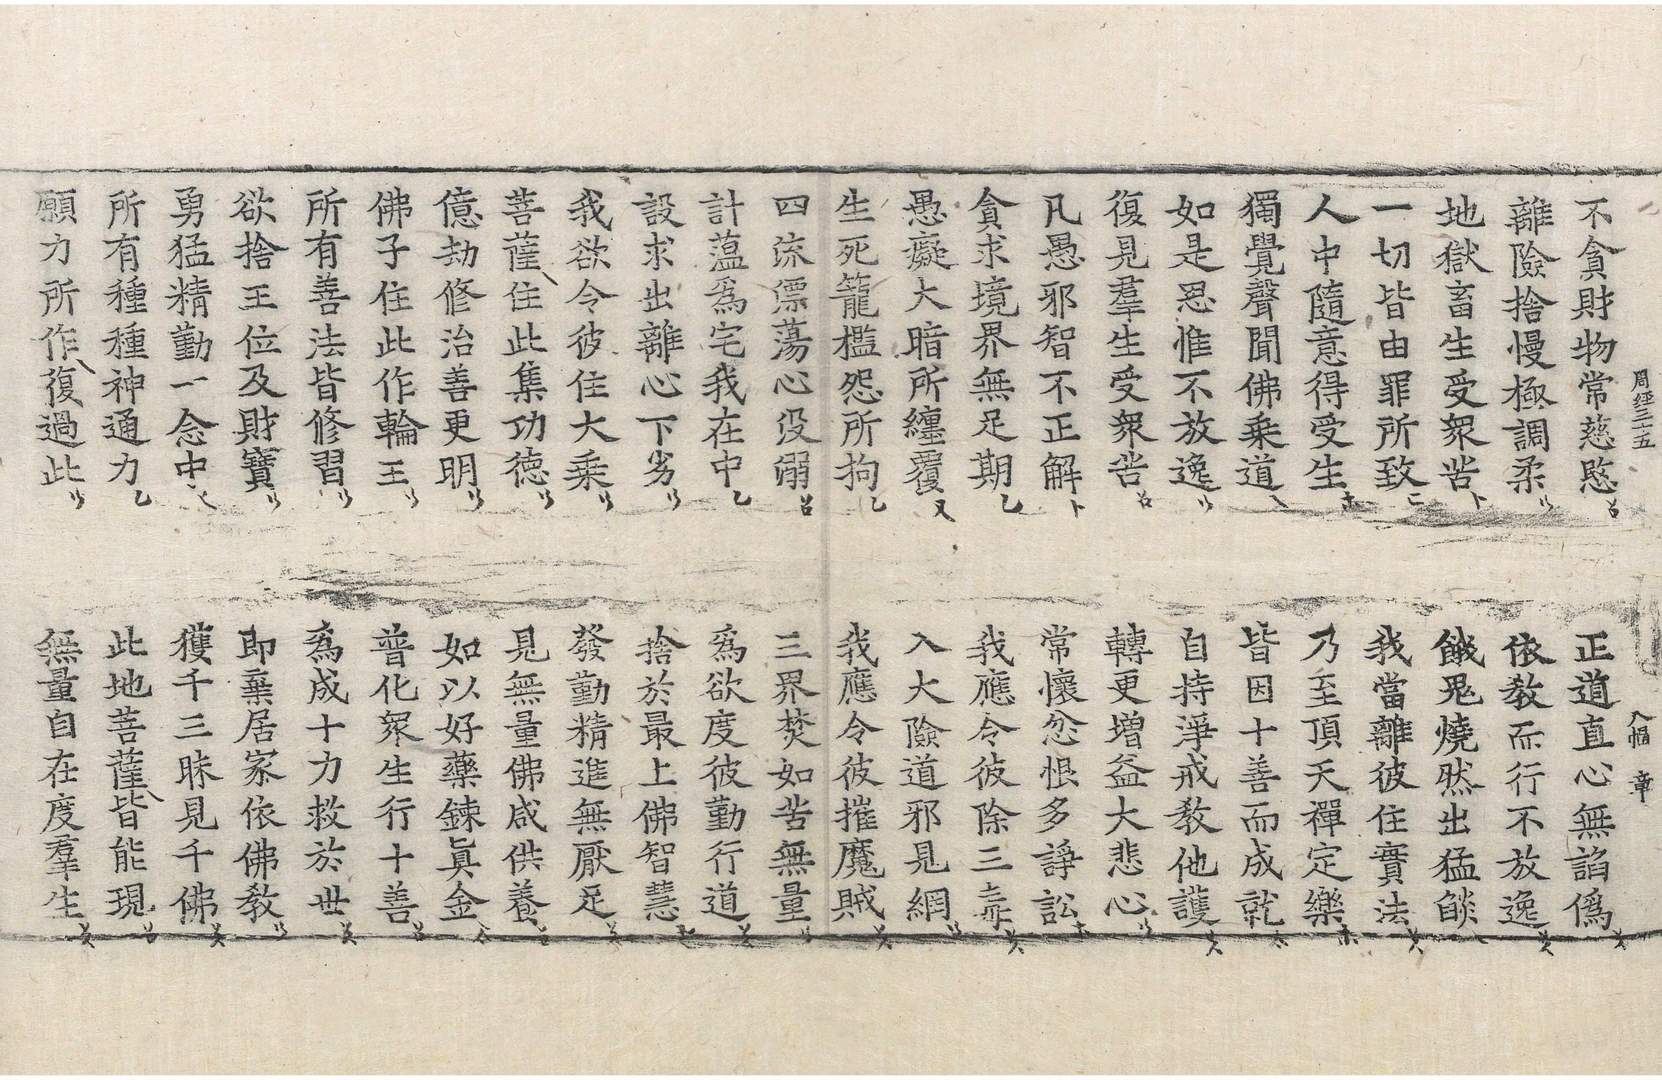 周經三十五　八幅　章
不貪財物常慈愍　正道直心無諂僞
離險捨慢極調柔　依教而行不放逸
地獄畜生受衆苦　餓鬼燒然出猛燄
一切皆由罪所致　我當離彼住實法
人中隨意得受生　乃至頂天禪定樂
獨覺聲聞佛乘道　皆因十善而成就
如是思惟不放逸　自持淨戒教他護
復見羣生受衆苦　轉更增益大悲心
凡愚邪智不正解　常懷忿恨多諍訟
貪求境界無足期　我應令彼除三毒
愚癡大暗所纏覆　入大險道邪見網
生死籠檻怨所拘　我應令彼摧魔賊
四流漂蕩心没溺　三界焚如苦無量
計薀爲宅我在中　爲欲度彼勤行道
設求出離心下劣　捨於最上佛智慧
我欲令彼住大乘　發勤精進無厭足
菩薩住此集功德　見無量佛咸供養
億劫修治善更明　如以好藥鍊眞金
佛子住此作輪王　普化衆生行十善
所有善法皆修習　爲成十力救於世
欲捨王位及財寶　即棄居家依佛教
勇猛精勤一念中　獲千三昧見千佛
所有種種神通力　此地菩薩皆能現
願力所作復過此　無量自在度羣生